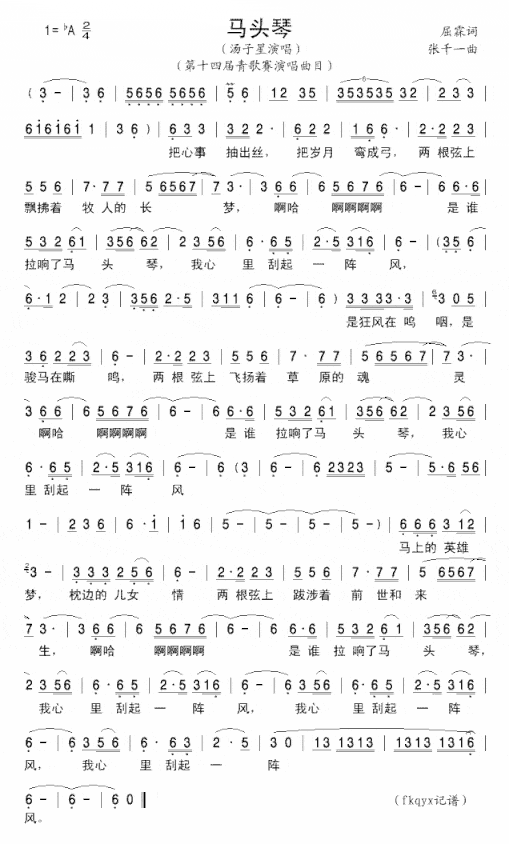 马头琴
1=♭A 2/4
屈霖词
(汤子星演唱)
张千一曲
(第十四届青歌赛演唱曲目)
(3 - | 3 6 | 5656 5656 | 5 6 | 12 35 | 353535 32 | 2 3 3 |
6i6i6i 1 | 3 6 ) | 6 3 3 | 3 2 2 3 | 6 2 2 | 1 6 6· | 2·2 2 3 |
把心事 抽出丝, 把岁月 弯成弓, 两 根弦上
5 5 6 | 7·7 7 | 5 6567 | 7 3· | 3 6 6 | 5 6 7 6 | 6 - | 6 6·6 |
飘拂着 牧 人的 长 梦, 啊哈 啊啊啊啊 是谁
5 3 2 61 | 3 56 62 | 2 3 56 | 6·6 5 | 2·5 316 | 6 - | (35 6 |
拉响了马 头 琴, 我心 里刮起 一 阵 风,
6·1 2 | 2 3 | 3 56 2·5 | 3116 | 6 - | 6 ) | 3 3 33·3 | 3 0 5 |
是狂风在 呜 咽,是
3 6 2 2 3 | 6 - | 2·2 2 3 | 5 5 6 | 7·7 7 | 5 6567 | 7 3· |
骏马在嘶 鸣, 两 根 弦上 飞扬着 草 原的 魂 灵
3 6 6 | 5 6 7 6 | 6 - | 6 6·6 | 5 3 2 61 | 3 56 62 | 2 3 56 |
啊哈 啊啊啊啊 是谁 拉响了马 头 琴, 我心
6·6 5 | 2·5 316 | 6 (3 | 6 - | 6 2323 | 5 - | 5 6 |
里 刮起 一 阵 风
1 - | 2 3 6 | 6·i | i 6 | 5 - | 5 - | 5 - | 5 - ) | 6 6 6 3 12 |
马上的 英雄
3 - | 3 3 3 2 5 6 | 6 - | 2·2 2 3 | 5 5 6 | 7·7 7 | 5 6567 |
梦, 枕边的 儿女 情 两 根弦上 跋涉着 前 世和 来
7 3· | 3 6 6 | 5 6 7 6 | 6 - | 6 6·6 | 5 3 2 6 1 | 3 56 62 |
生, 啊哈 啊啊啊啊 是 谁 拉 响了马 头 琴,
2 3 56 | 6·6 5 | 2·5 316 | 6 - | 2 3 56 | 6·6 5 | 2·5 316 |
我心 里刮起 一 阵 风, 我心 里 刮起 一 阵
6 - | 6 3 5 6 | 6·6 3 | 2·5 | 3 0 | 13 1313 | 1313 1313 |
风, 我心 里刮起 一 阵
6 - | 6 - | 6 0 ‖
(fkqyx记谱)
风。